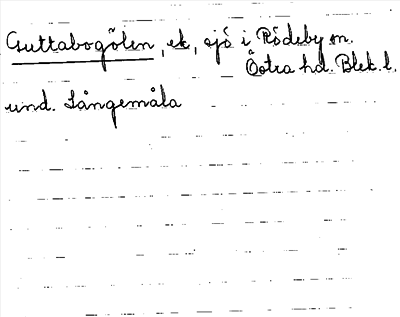 Guttabogölen, ek, sjö i Rödeby sn.
Östra hd. Blek. l.
und. Långemåla